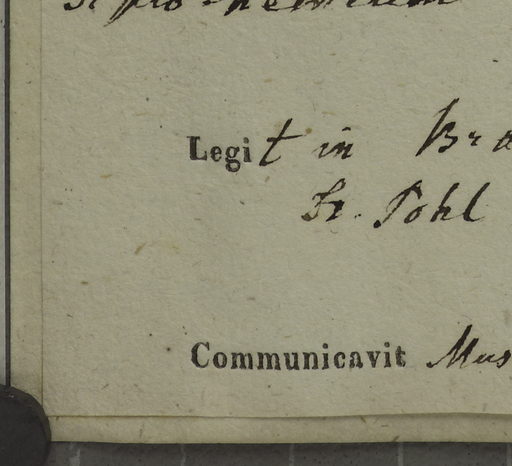 Legit in Bra
Dr. Pohl
Communicavit Mus